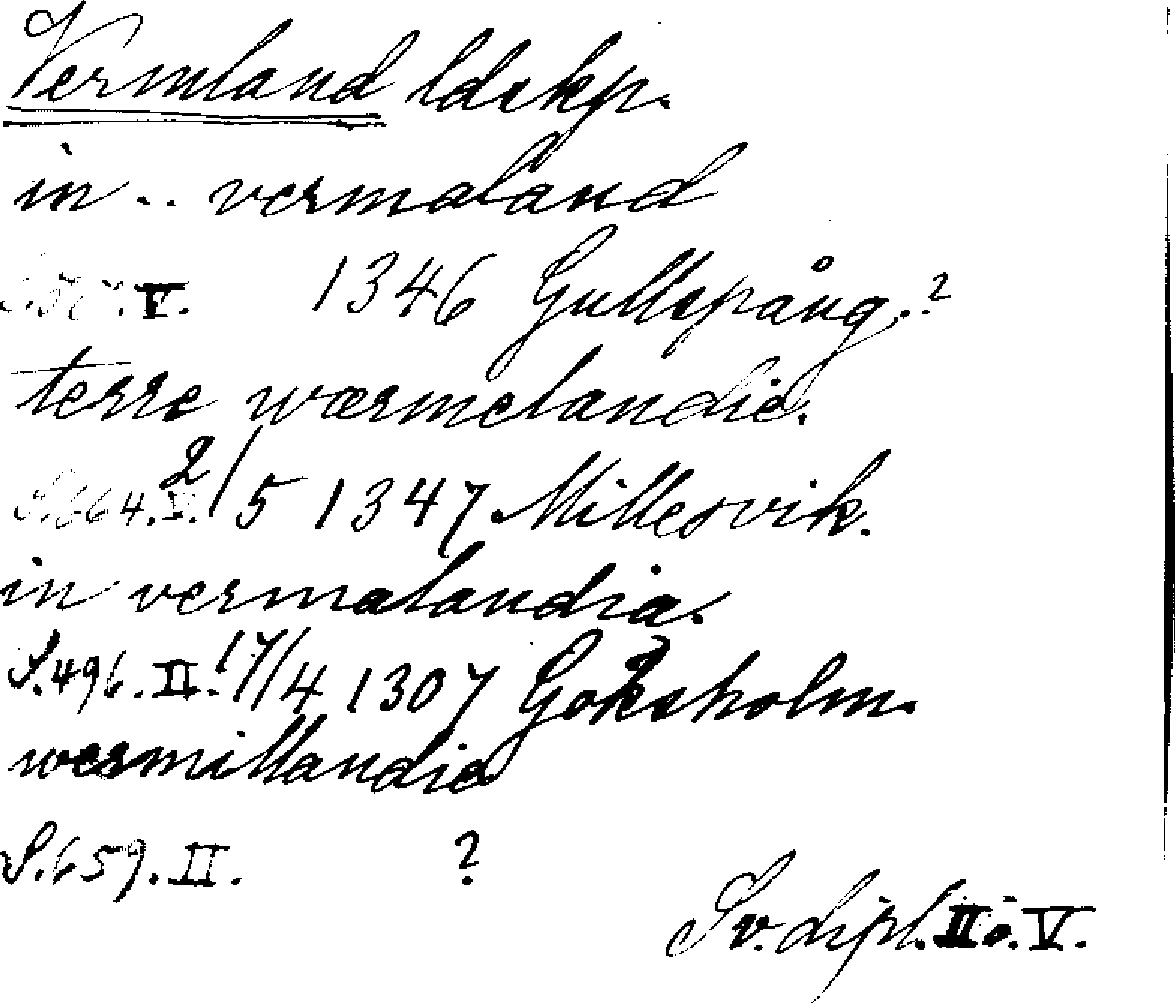 Vermland ldskp.
in .. vermaland
V. 1346 Gullspång.?
terre wærmelandie.
S. 664. V. 2/5 1347 Millesvik.
in vermalandia.
S. 496. II. 17/4 1307 Goksholm.
wermillandie
S. 659. II. ?
Sv. dipl. II o. V.